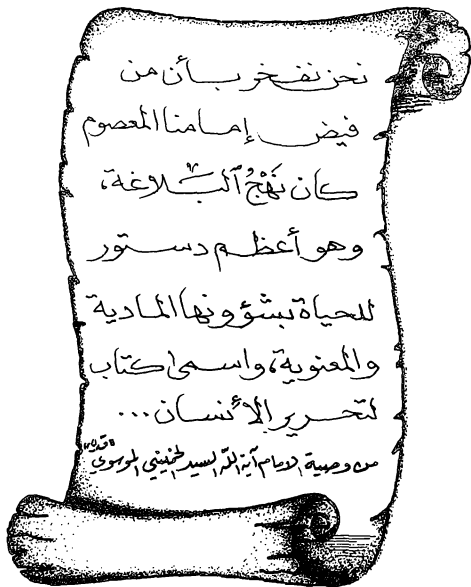 نحن نفخر بأن من
فيض إمامنا المعصوم
كان نَهْجُ ٱلبَلَاغة،
وهو أعظم دستور
للحياة بشؤونها المادية
والمعنوية، واسمى كتاب
لتحرير الأنسان...
من وصية الامام آية اللّه السيد الخميني الموسوي "قده"